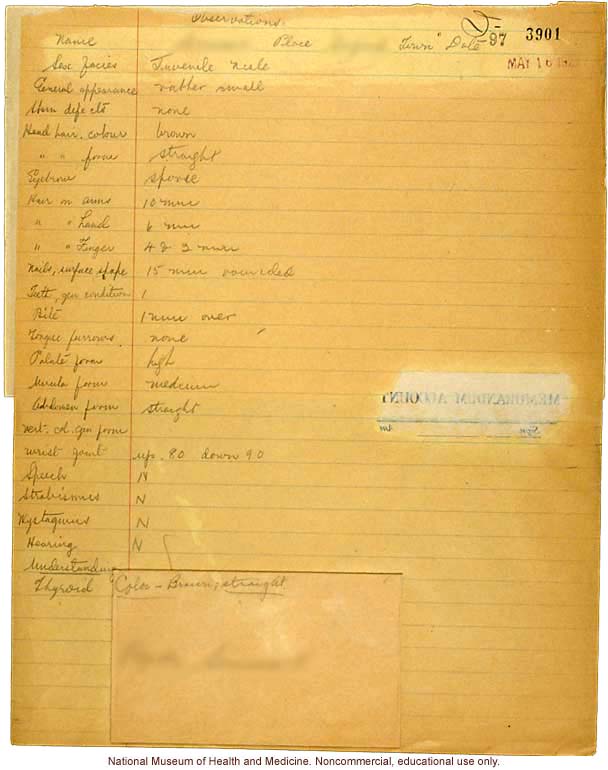 Observations.
97 3901
Name Place Town" Date
MAY 16
Sex facies Juvenile Male
General appearance rather small
Skin defects none
Head hair, colour brown
" " form straight
Eyebrow sparse
Hair on arms 10 mm
" " Hand 6 mm
" " Finger 4 & 3 mm
Nails, surface shape 15 mm rounded
Teeth, gen condition 1
Bite 1 mm over
Tongue furrows none
Palate form high
Uvula form medium
Abdomen form straight
Vert. col. gen form
Wrist joint up. 80 down 90
Speech N
Strabismus N
Nystagmus N
Hearing N
Understanding
Thyroid
Color – Brown; straight
MEMORANDUM ACCOUNT
National Museum of Health and Medicine. Noncommercial, educational use only.